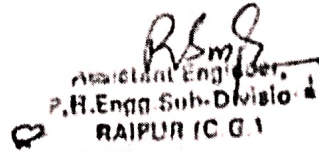 Assistant Engineer,
P.H.Engg.Sub-Divisio
RAIPUR (C.G.)